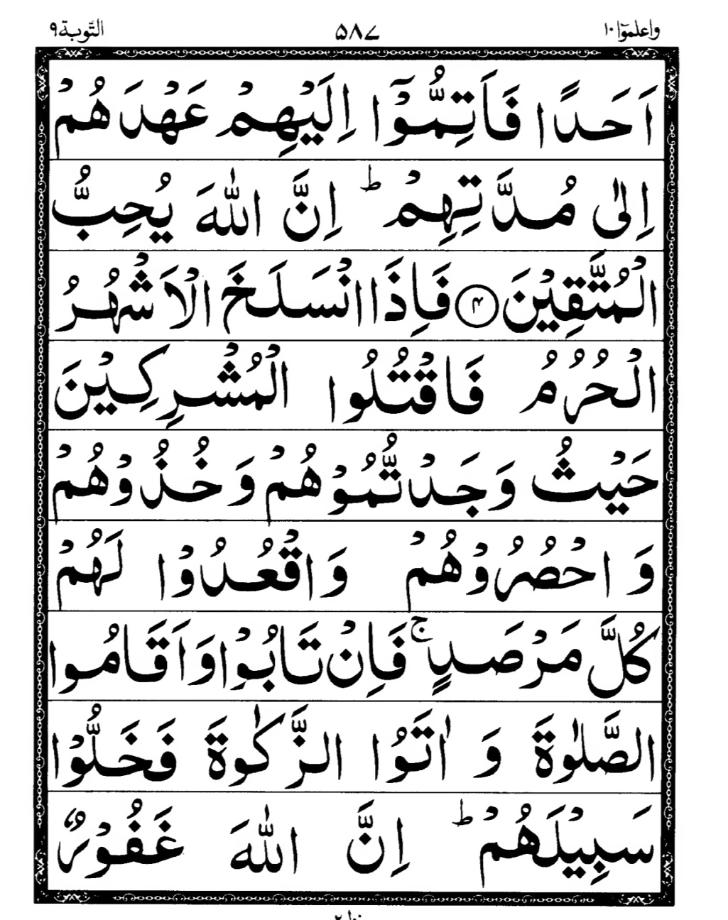 واعلموا ١٠ ۵۸۷ التوبة ٩
اَحَدًا فَاَتِمُّوْۤا اِلَيْهِمْ عَهْدَهُمْ
اِلٰى مُدَّتِهِمْ ؕ اِنَّ اللّٰهَ يُحِبُّ
الْمُتَّقِيْنَ ۴ فَاِذَا انْسَلَخَ الْاَشْهُرُ
الْحُرُمُ فَاقْتُلُوا الْمُشْرِكِيْنَ
حَيْثُ وَجَدْتُّمُوْهُمْ وَخُذُوْهُمْ
وَاحْصُرُوْهُمْ وَاقْعُدُوْا لَهُمْ
كُلَّ مَرْصَدٍ ۚ فَاِنْ تَابُوْا وَاَقَامُوا
الصَّلٰوةَ وَاٰتَوُا الزَّكٰوةَ فَخَلُّوْا
سَبِيْلَهُمْ ؕ اِنَّ اللّٰهَ غَفُوْرٌ